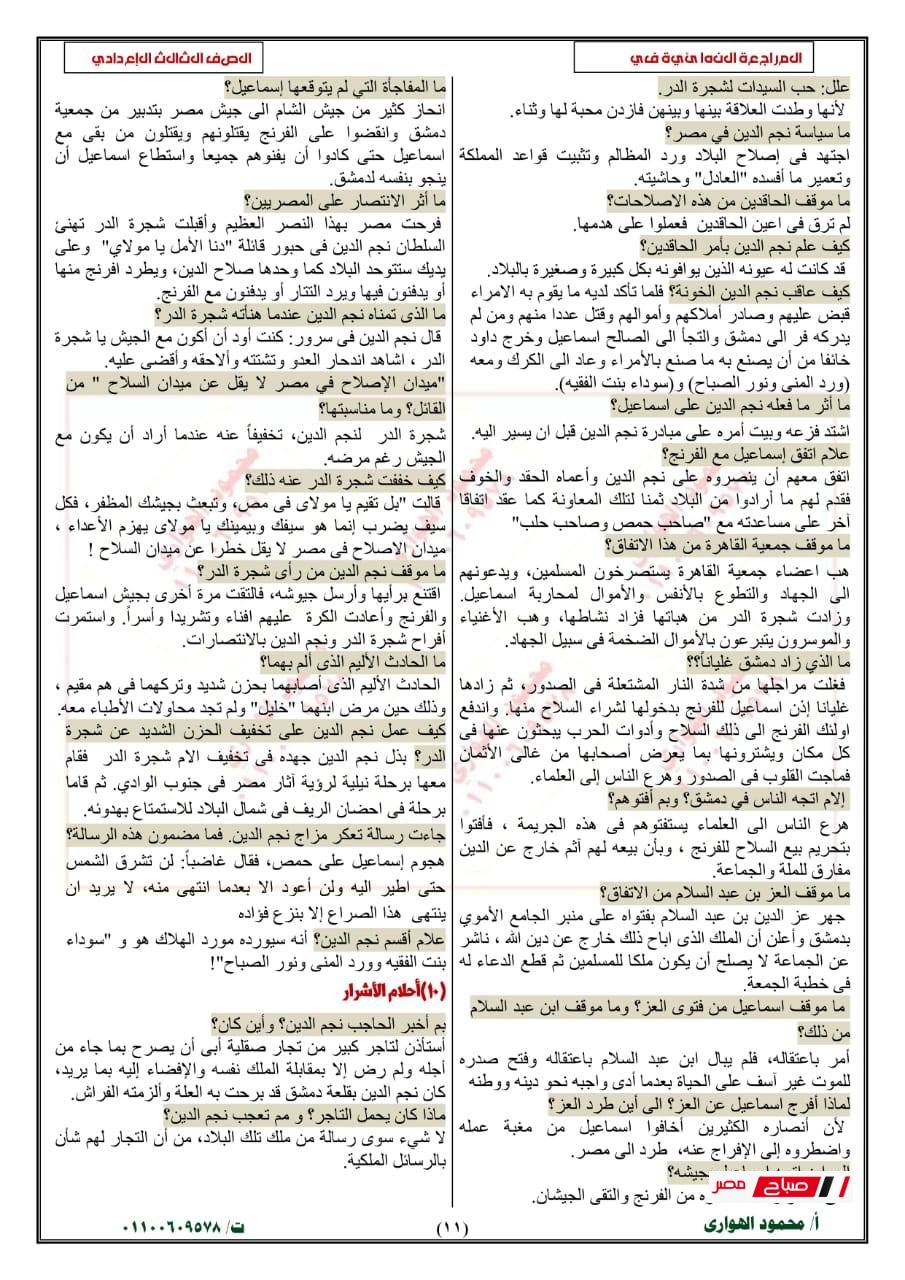 المراجعة النهائية في
الصف الثالث الإعدادي
علل: حب السيدات لشجرة الدر.
لأنها وطدت العلاقة بينها وبينهن فازدن محبة لها وثناء.
ما سياسة نجم الدين في مصر؟
اجتهد فى إصلاح البلاد ورد المظالم وتثبيت قواعد المملكة
وتعمير ما أفسده "العادل" وحاشيته.
ما موقف الحاقدين من هذه الاصلاحات؟
لم ترق فى اعين الحاقدين فعملوا على هدمها.
كيف علم نجم الدين بأمر الحاقدين؟
قد كانت له عيونه الذين يوافونه بكل كبيرة وصغيرة بالبلاد.
كيف عاقب نجم الدين الخونة؟ فلما تأكد لديه ما يقوم به الامراء
قبض عليهم وصادر أملاكهم وأموالهم وقتل عددا منهم ومن لم
يدركه فر الى دمشق والتجأ الى الصالح اسماعيل وخرج داود
خائفا من أن يصنع به ما صنع بالأمراء وعاد الى الكرك ومعه
(ورد المنى ونور الصباح) و(سوداء بنت الفقيه).
ما أثر ما فعله نجم الدين على اسماعيل؟
اشتد فزعه وبيت أمره على مبادرة نجم الدين قبل ان يسير اليه.
علام اتفق إسماعيل مع الفرنج؟
اتفق معهم أن ينصروه على نجم الدين وأعماه الحقد والخوف
فقدم لهم ما أرادوا من البلاد ثمنا لتلك المعاونة كما عقد اتفاقا
آخر على مساعدته مع "صاحب حمص وصاحب حلب"
ما موقف جمعية القاهرة من هذا الاتفاق؟
هب اعضاء جمعية القاهرة يستصرخون المسلمين، ويدعونهم
الى الجهاد والتطوع بالأنفس والأموال لمحاربة اسماعيل.
وزادت شجرة الدر من هباتها فزاد نشاطها، وهب الأغنياء
والموسرون يتبرعون بالأموال الضخمة فى سبيل الجهاد.
ما الذي زاد دمشق غلياناً؟؟
فغلت مراجلها من شدة النار المشتعلة فى الصدور، ثم زادها
غليانا إذن اسماعيل للفرنج بدخولها لشراء السلاح منها. واندفع
اولئك الفرنج الى ذلك السلاح وأدوات الحرب يبحثون عنها فى
كل مكان ويشترونها بما يعرض أصحابها من غالى الأثمان
فماجت القلوب فى الصدور وهرع الناس إلى العلماء.
إلام اتجه الناس في دمشق؟ وبم أفتوهم؟
هرع الناس الى العلماء يستفتوهم فى هذه الجريمة ، فأفتوا
بتحريم بيع السلاح للفرنج ، وبأن بيعه لهم أثم خارج عن الدين
مفارق للملة والجماعة.
ما موقف العز بن عبد السلام من الاتفاق؟
جهر عز الدين بن عبد السلام بفتواه على منبر الجامع الأموي
بدمشق وأعلن أن الملك الذى اباح ذلك خارج عن دين الله ، ناشر
عن الجماعة لا يصلح أن يكون ملكا للمسلمين ثم قطع الدعاء له
فى خطبة الجمعة.
ما موقف اسماعيل من فتوى العز؟ وما موقف ابن عبد السلام
من ذلك؟
أمر باعتقاله، فلم يبال ابن عبد السلام باعتقاله وفتح صدره
للموت غير آسف على الحياة بعدما أدى واجبه نحو دينه ووطنه
لماذا أفرج اسماعيل عن العز؟ الى أين طرد العز؟
لأن أنصاره الكثيرين أخافوا اسماعيل من مغبة عمله
واضطروه إلى الإفراج عنه، طرد الى مصر.
بجيشه؟
من الفرنج والتقى الجيشان.
ما المفاجأة التي لم يتوقعها إسماعيل؟
انحاز كثير من جيش الشام الى جيش مصر بتدبير من جمعية
دمشق وانقضوا على الفرنج يقتلونهم ويقتلون من بقى مع
اسماعيل حتى كادوا أن يفنوهم جميعا واستطاع اسماعيل أن
ينجو بنفسه لدمشق.
ما أثر الانتصار على المصريين؟
فرحت مصر بهذا النصر العظيم وأقبلت شجرة الدر تهنئ
السلطان نجم الدين فى حبور قائلة "دنا الأمل يا مولاي" وعلى
يديك ستتوحد البلاد كما وحدها صلاح الدين، ويطرد افرنج منها
أو يدفنون فيها ويرد التتار أو يدفنون مع الفرنج.
ما الذى تمناه نجم الدين عندما هنأته شجرة الدر؟
قال نجم الدين فى سرور: كنت أود أن أكون مع الجيش يا شجرة
الدر ، اشاهد اندحار العدو وتشتته وألاحقه وأقضى عليه.
"ميدان الإصلاح في مصر لا يقل عن ميدان السلاح " من
القائل؟ وما مناسبتها؟
شجرة الدر لنجم الدين، تخفيفاً عنه عندما أراد أن يكون مع
الجيش رغم مرضه.
كيف خففت شجرة الدر عنه ذلك؟
قالت "بل تقيم يا مولاى فى مص، وتبعث بجيشك المظفر، فكل
سيف يضرب إنما هو سيفك وبيمينك يا مولاى يهزم الأعداء ،
ميدان الاصلاح فى مصر لا يقل خطرا عن ميدان السلاح !
ما موقف نجم الدين من رأى شجرة الدر؟
اقتنع برأيها وأرسل جيوشه، فالتقت مرة أخرى بجيش اسماعيل
والفرنج وأعادت الكرة عليهم افناء وتشريدا وأسراً. واستمرت
أفراح شجرة الدر ونجم الدين بالانتصارات.
ما الحادث الأليم الذى ألم بهما؟
الحادث الأليم الذى أصابهما بحزن شديد وتركهما فى هم مقيم ،
وذلك حين مرض ابنهما "خليل" ولم تجد محاولات الأطباء معه.
كيف عمل نجم الدين على تخفيف الحزن الشديد عن شجرة
الدر؟ بذل نجم الدين جهده فى تخفيف الام شجرة الدر فقام
معها برحلة نيلية لرؤية آثار مصر فى جنوب الوادي. ثم قاما
برحلة فى احضان الريف فى شمال البلاد للاستمتاع بهدونه.
جاءت رسالة تعكر مزاج نجم الدين. فما مضمون هذه الرسالة؟
هجوم إسماعيل على حمص، فقال غاضباً: لن تشرق الشمس
حتى اطير اليه ولن أعود الا بعدما انتهى منه، لا يريد ان
ينتهى هذا الصراع إلا بنزع فؤاده
علام أقسم نجم الدين؟ أنه سيورده مورد الهلاك هو و "سوداء
بنت الفقيه وورد المنى ونور الصباح"!
(١٠) أحلام الأشرار
بم أخبر الحاجب نجم الدين؟ وأين كان؟
أستأذن لتاجر كبير من تجار صقلية أبى أن يصرح بما جاء من
أجله ولم رض إلا بمقابلة الملك نفسه والإفضاء إليه بما يريد،
كان نجم الدين بقلعة دمشق قد برحت به العلة وألزمته الفراش.
ماذا كان يحمل التاجر؟ و مم تعجب نجم الدين؟
لا شيء سوى رسالة من ملك تلك البلاد، من أن التجار لهم شأن
بالرسائل الملكية.
صباح مصر
أ/ محمود الهوارى
(١١)
ت/ ٠١١٠٠٦٠٩٥٧٨